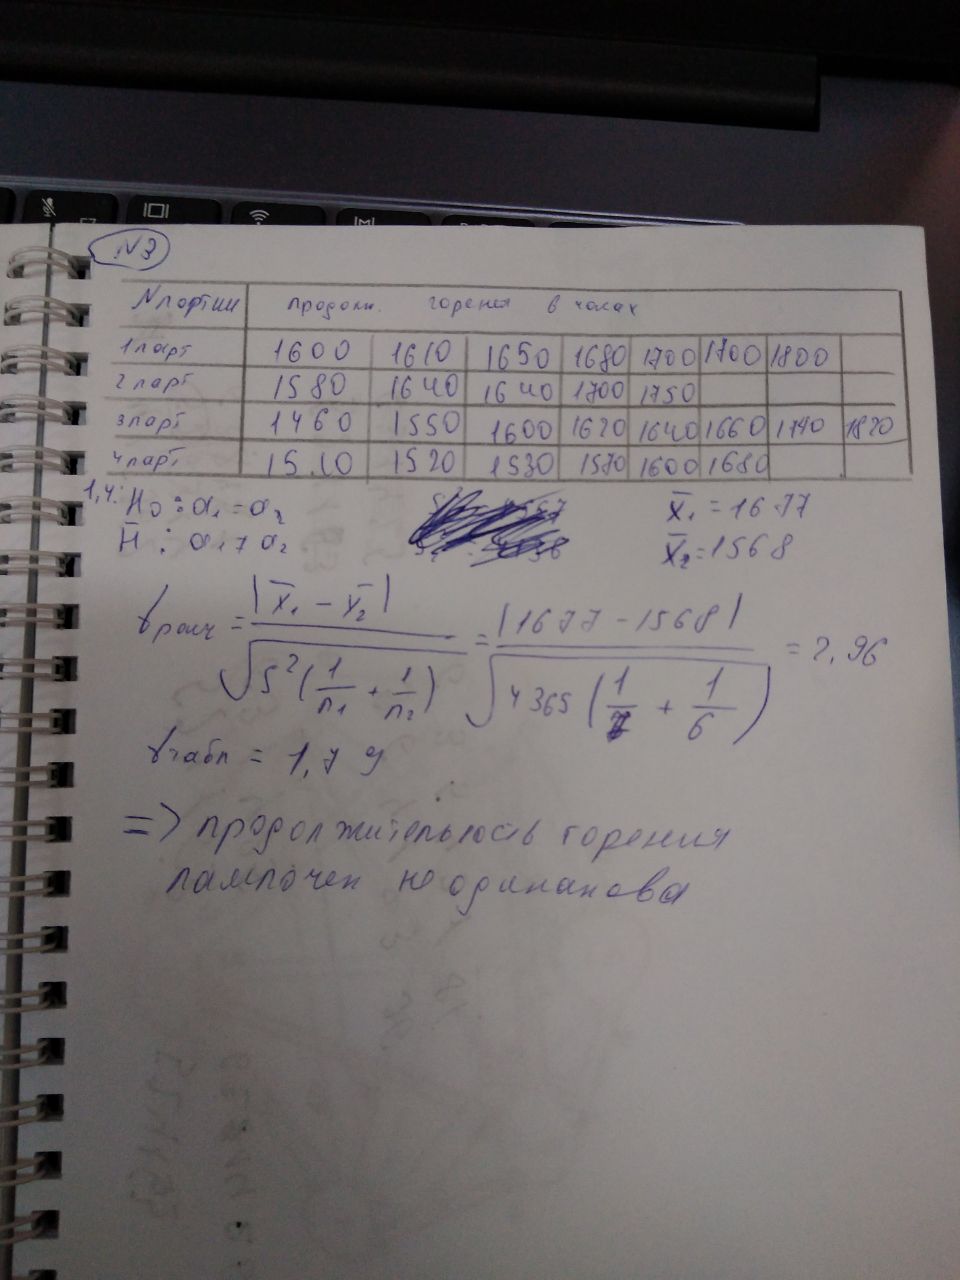 N3
Nпартии продолж. горения в часах
1 парт 1600 1610 1650 1680 1700 1700 1800
2 парт 1580 1640 1640 1700 1750
3 парт 1460 1550 1600 1620 1640 1660 1740 1820
4 парт 1510 1520 1530 1570 1600 1680
1,4: H₀ : a₁ = a₂ x̄₁ = 1677
H̄ : a₁ ≠ a₂ x̄₂ = 1568
= |x̄₁ - x̄₂| / √S²(1/n₁ + 1/n₂) = |1677 - 1568| / √4365(1/7 + 1/6) = 2,96
табл = 1,79
=> продолжительность горения
лампочек не одинакова